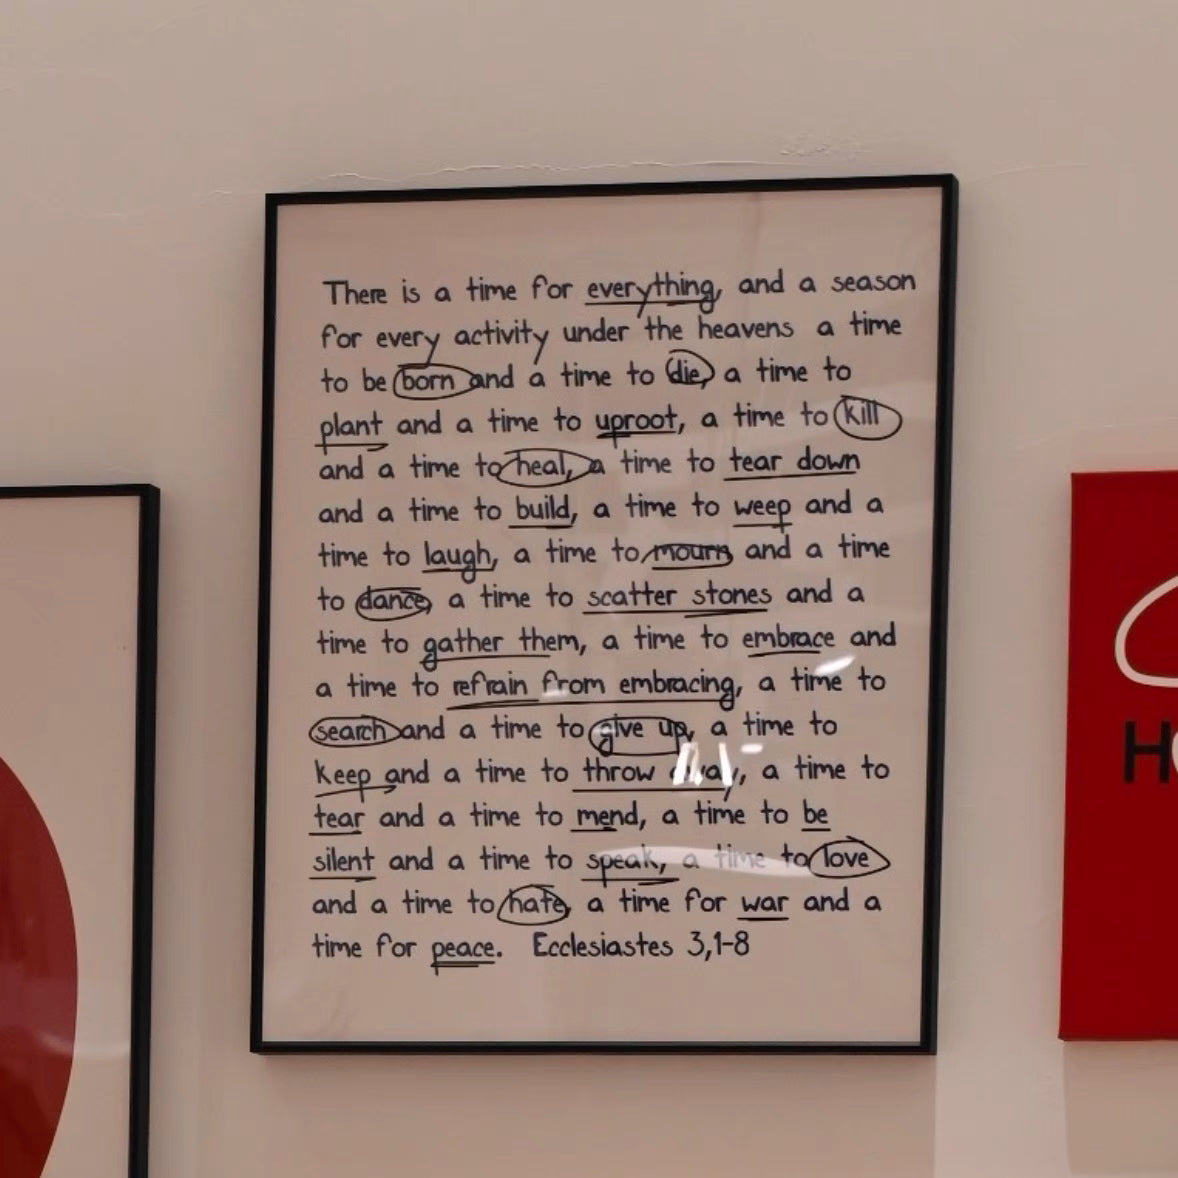 There is a time for everything, and a season
for every activity under the heavens a time
to be born and a time to die, a time to
plant and a time to uproot, a time to kill
and a time to heal, a time to tear down
and a time to build, a time to weep and a
time to laugh, a time to mourn and a time
to dance, a time to scatter stones and a
time to gather them, a time to embrace and
a time to refrain from embracing, a time to
search and a time to give up, a time to
keep and a time to throw away, a time to
tear and a time to mend, a time to be
silent and a time to speak, a time to love
and a time to hate, a time for war and a
time for peace. Ecclesiastes 3,1-8